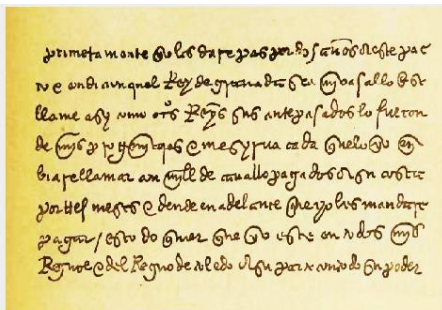 primeramente que les dare paz por dos años deste pac
to e condiçion quel Rey de granada sea mi vasallo e se
llame asy como otros Reyes sus antepasados lo fueron
de mis progenitores e me syrua cada que lo yo en
biare llamar con mill de cauallo pagados a su costa
por tres meses e dende en adelante que yo les mandare
pagar / esto do quier que yo este en todos mis
Regnos e del Regno de toledo su poder